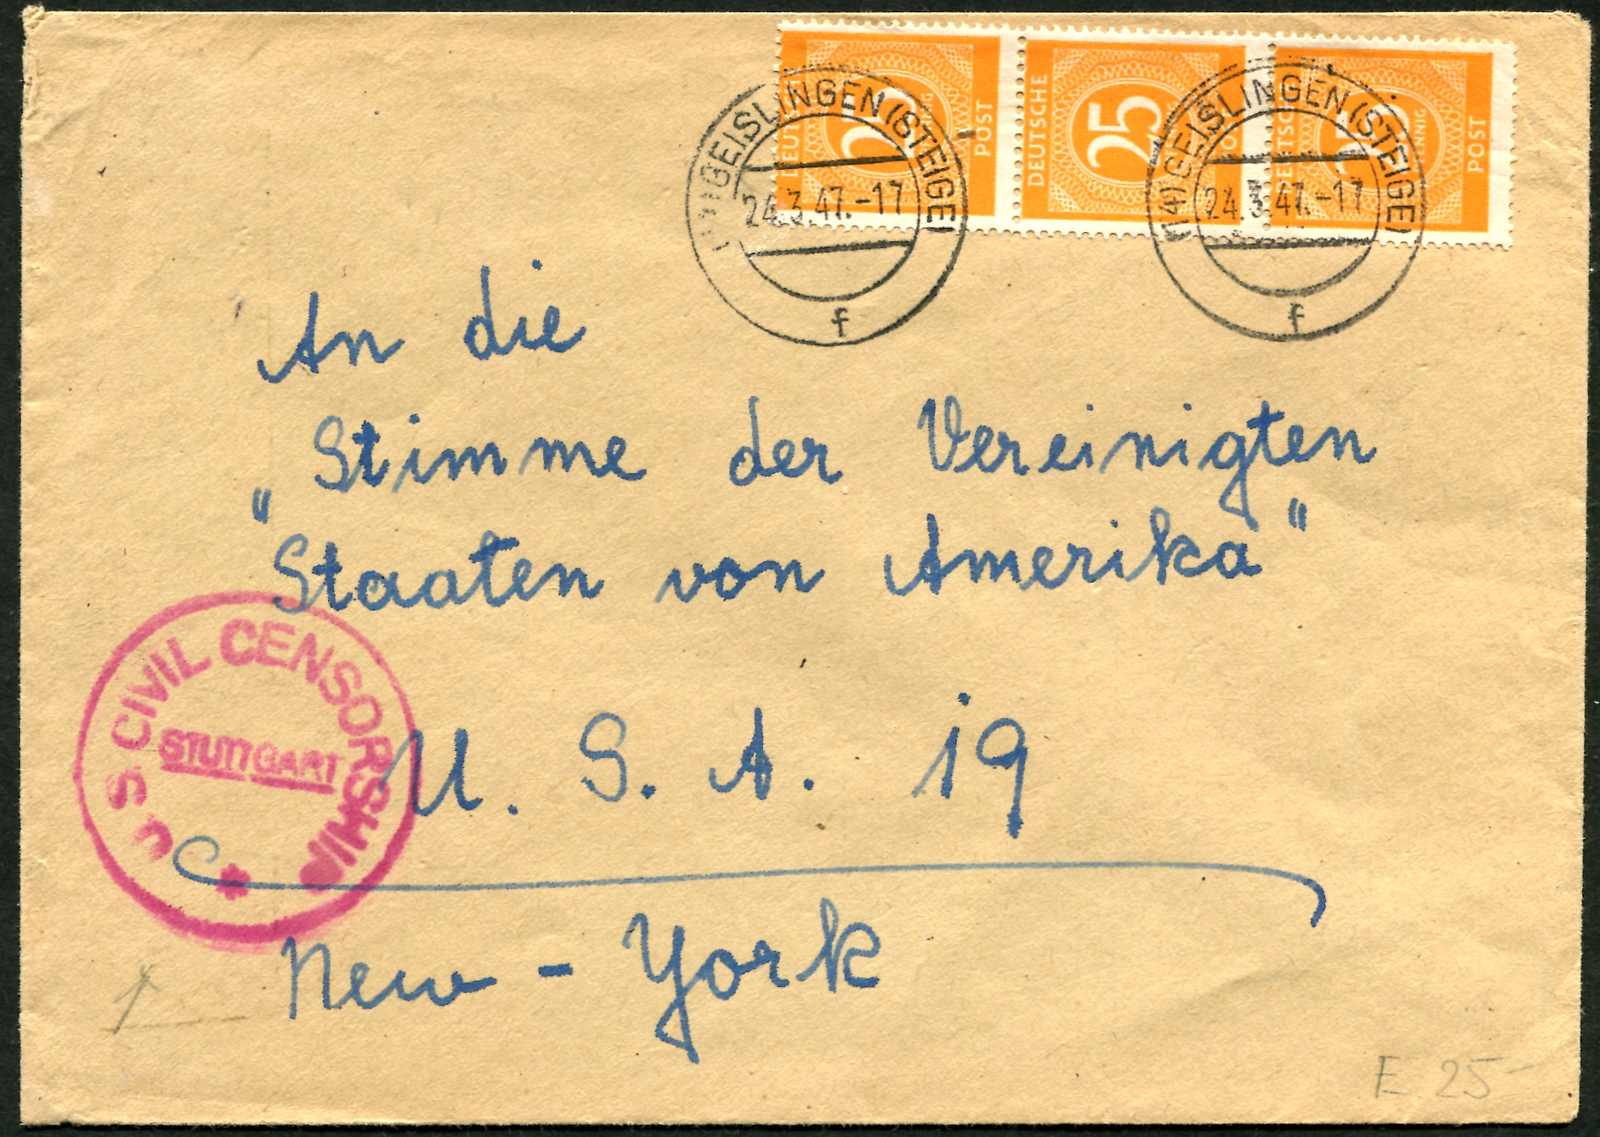 DEUTSCHE 25 PFENNIG POST
DEUTSCHE 25 POST
DEUTSCHE 25 PFENNIG POST
GEISLINGEN (STEIGE)
24.3.47.-17
f
(14) GEISLINGEN (STEIGE)
24.3.47.-17
f
An die
„Stimme der Vereinigten
Staaten von Amerika"
U. S. A. 19
New-York
U.S. CIVIL CENSORSHIP
STUTTGART
E 25-